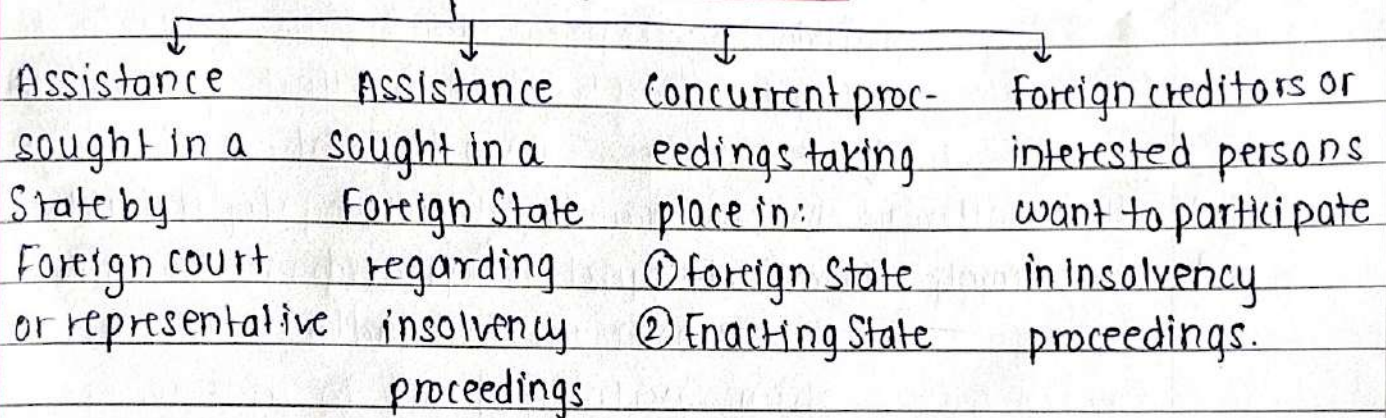 Assistance
sought in a
State by
Foreign court
or representative
Assistance
sought in a
Foreign State
regarding
insolvency
proceedings
Concurrent proc-
eedings taking
place in:
① foreign State
② Enacting State
Foreign creditors or
interested persons
want to participate
in insolvency
proceedings.